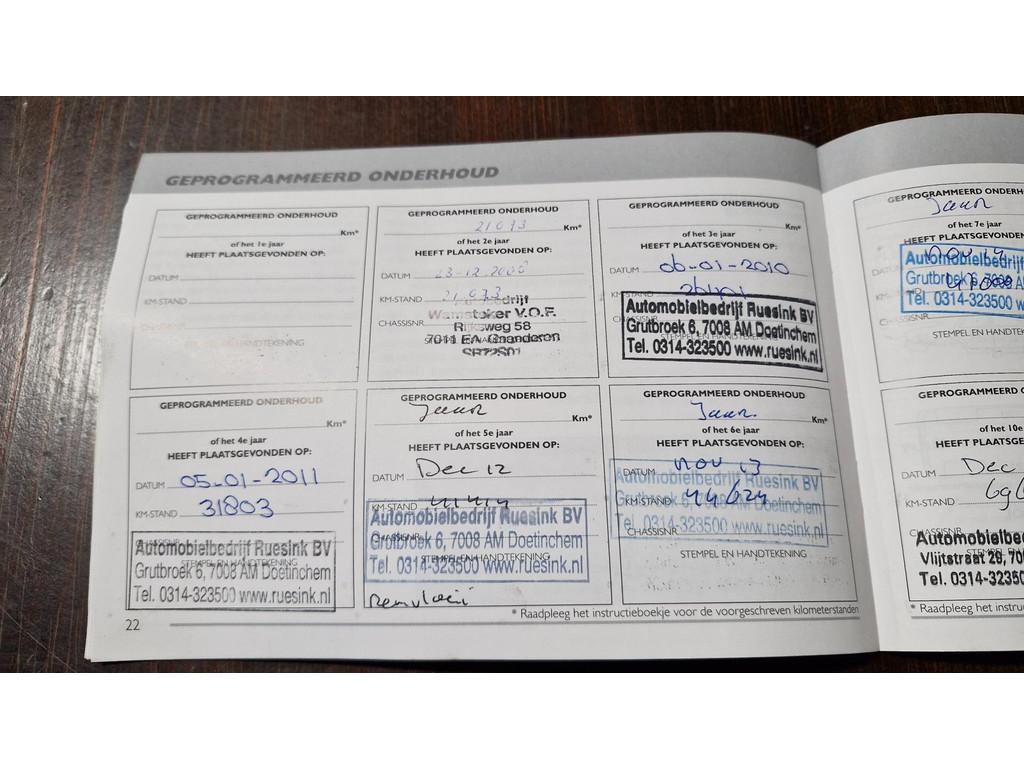 GEPROGRAMMEERD ONDERHOUD
GEPROGRAMMEERD ONDERHOUD
Km*
of het 1e jaar
HEEFT PLAATSGEVONDEN OP:
DATUM
KM-STAND
CHASSISNR.
STEMPEL EN HANDTEKENING
GEPROGRAMMEERD ONDERHOUD
21073 Km*
of het 2e jaar
HEEFT PLAATSGEVONDEN OP:
DATUM 23-12-2008
KM-STAND 21.073
CHASSISNR.
Wamsteker V.O.F.
Rijksweg 58
7011 EA Gaanderen
GEPROGRAMMEERD ONDERHOUD
Km*
of het 3e jaar
HEEFT PLAATSGEVONDEN OP:
DATUM 06-01-2010
KM-STAND 26401
Automobielbedrijf Ruesink BV
Grutbroek 6, 7008 AM Doetinchem
Tel. 0314-323500 www.ruesink.nl
GEPROGRAMMEERD ONDERHOUD
Km*
of het 4e jaar
HEEFT PLAATSGEVONDEN OP:
DATUM 05-01-2011
KM-STAND 31803
Automobielbedrijf Ruesink BV
STEMPEL EN HANDTEKENING
Grutbroek 6, 7008 AM Doetinchem
Tel. 0314-323500 www.ruesink.nl
GEPROGRAMMEERD ONDERHOUD
Jaar Km*
of het 5e jaar
HEEFT PLAATSGEVONDEN OP:
DATUM Dec 12
KM-STAND 41414
Automobielbedrijf Ruesink BV
CHASSISNR.
Grutbroek 6, 7008 AM Doetinchem
STEMPEL EN HANDTEKENING
Tel. 0314-323500 www.ruesink.nl
Remvloei
GEPROGRAMMEERD ONDERHOUD
Jaar Km*
of het 6e jaar
HEEFT PLAATSGEVONDEN OP:
DATUM nov 13
Automobielbedrijf Ruesink BV
KM-STAND 44624
Grutbroek 6, 7008 AM Doetinchem
CHASSISNR.
Tel. 0314-323500 www.ruesink.nl
STEMPEL EN HANDTEKENING
GEPROGRAMMEERD ONDERH
Jaar
of het 7e jaar
HEEFT PLAATSGEVONDEN
Automobielbedrijf
Grutbroek 6, 7008 A
Tel. 0314-323500 w
STEMPEL EN HANDTE
GEPROGRAMMEERD O
of het 10e
HEEFT PLAATSGEVO
DATUM Dec
KM-STAND
CHASSISNR.
Automobielbe
Vlijtstraat 29, 70
Tel. 0314-3235
22
* Raadpleeg het instructieboekje voor de voorgeschreven kilometerstanden
* Raadpleeg het instru